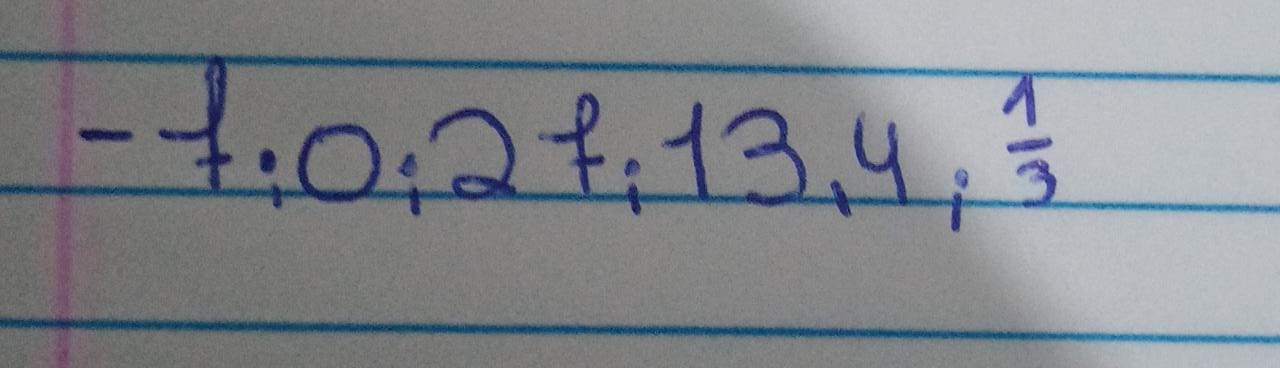 -7; 0; 27; 13,4; 1/3